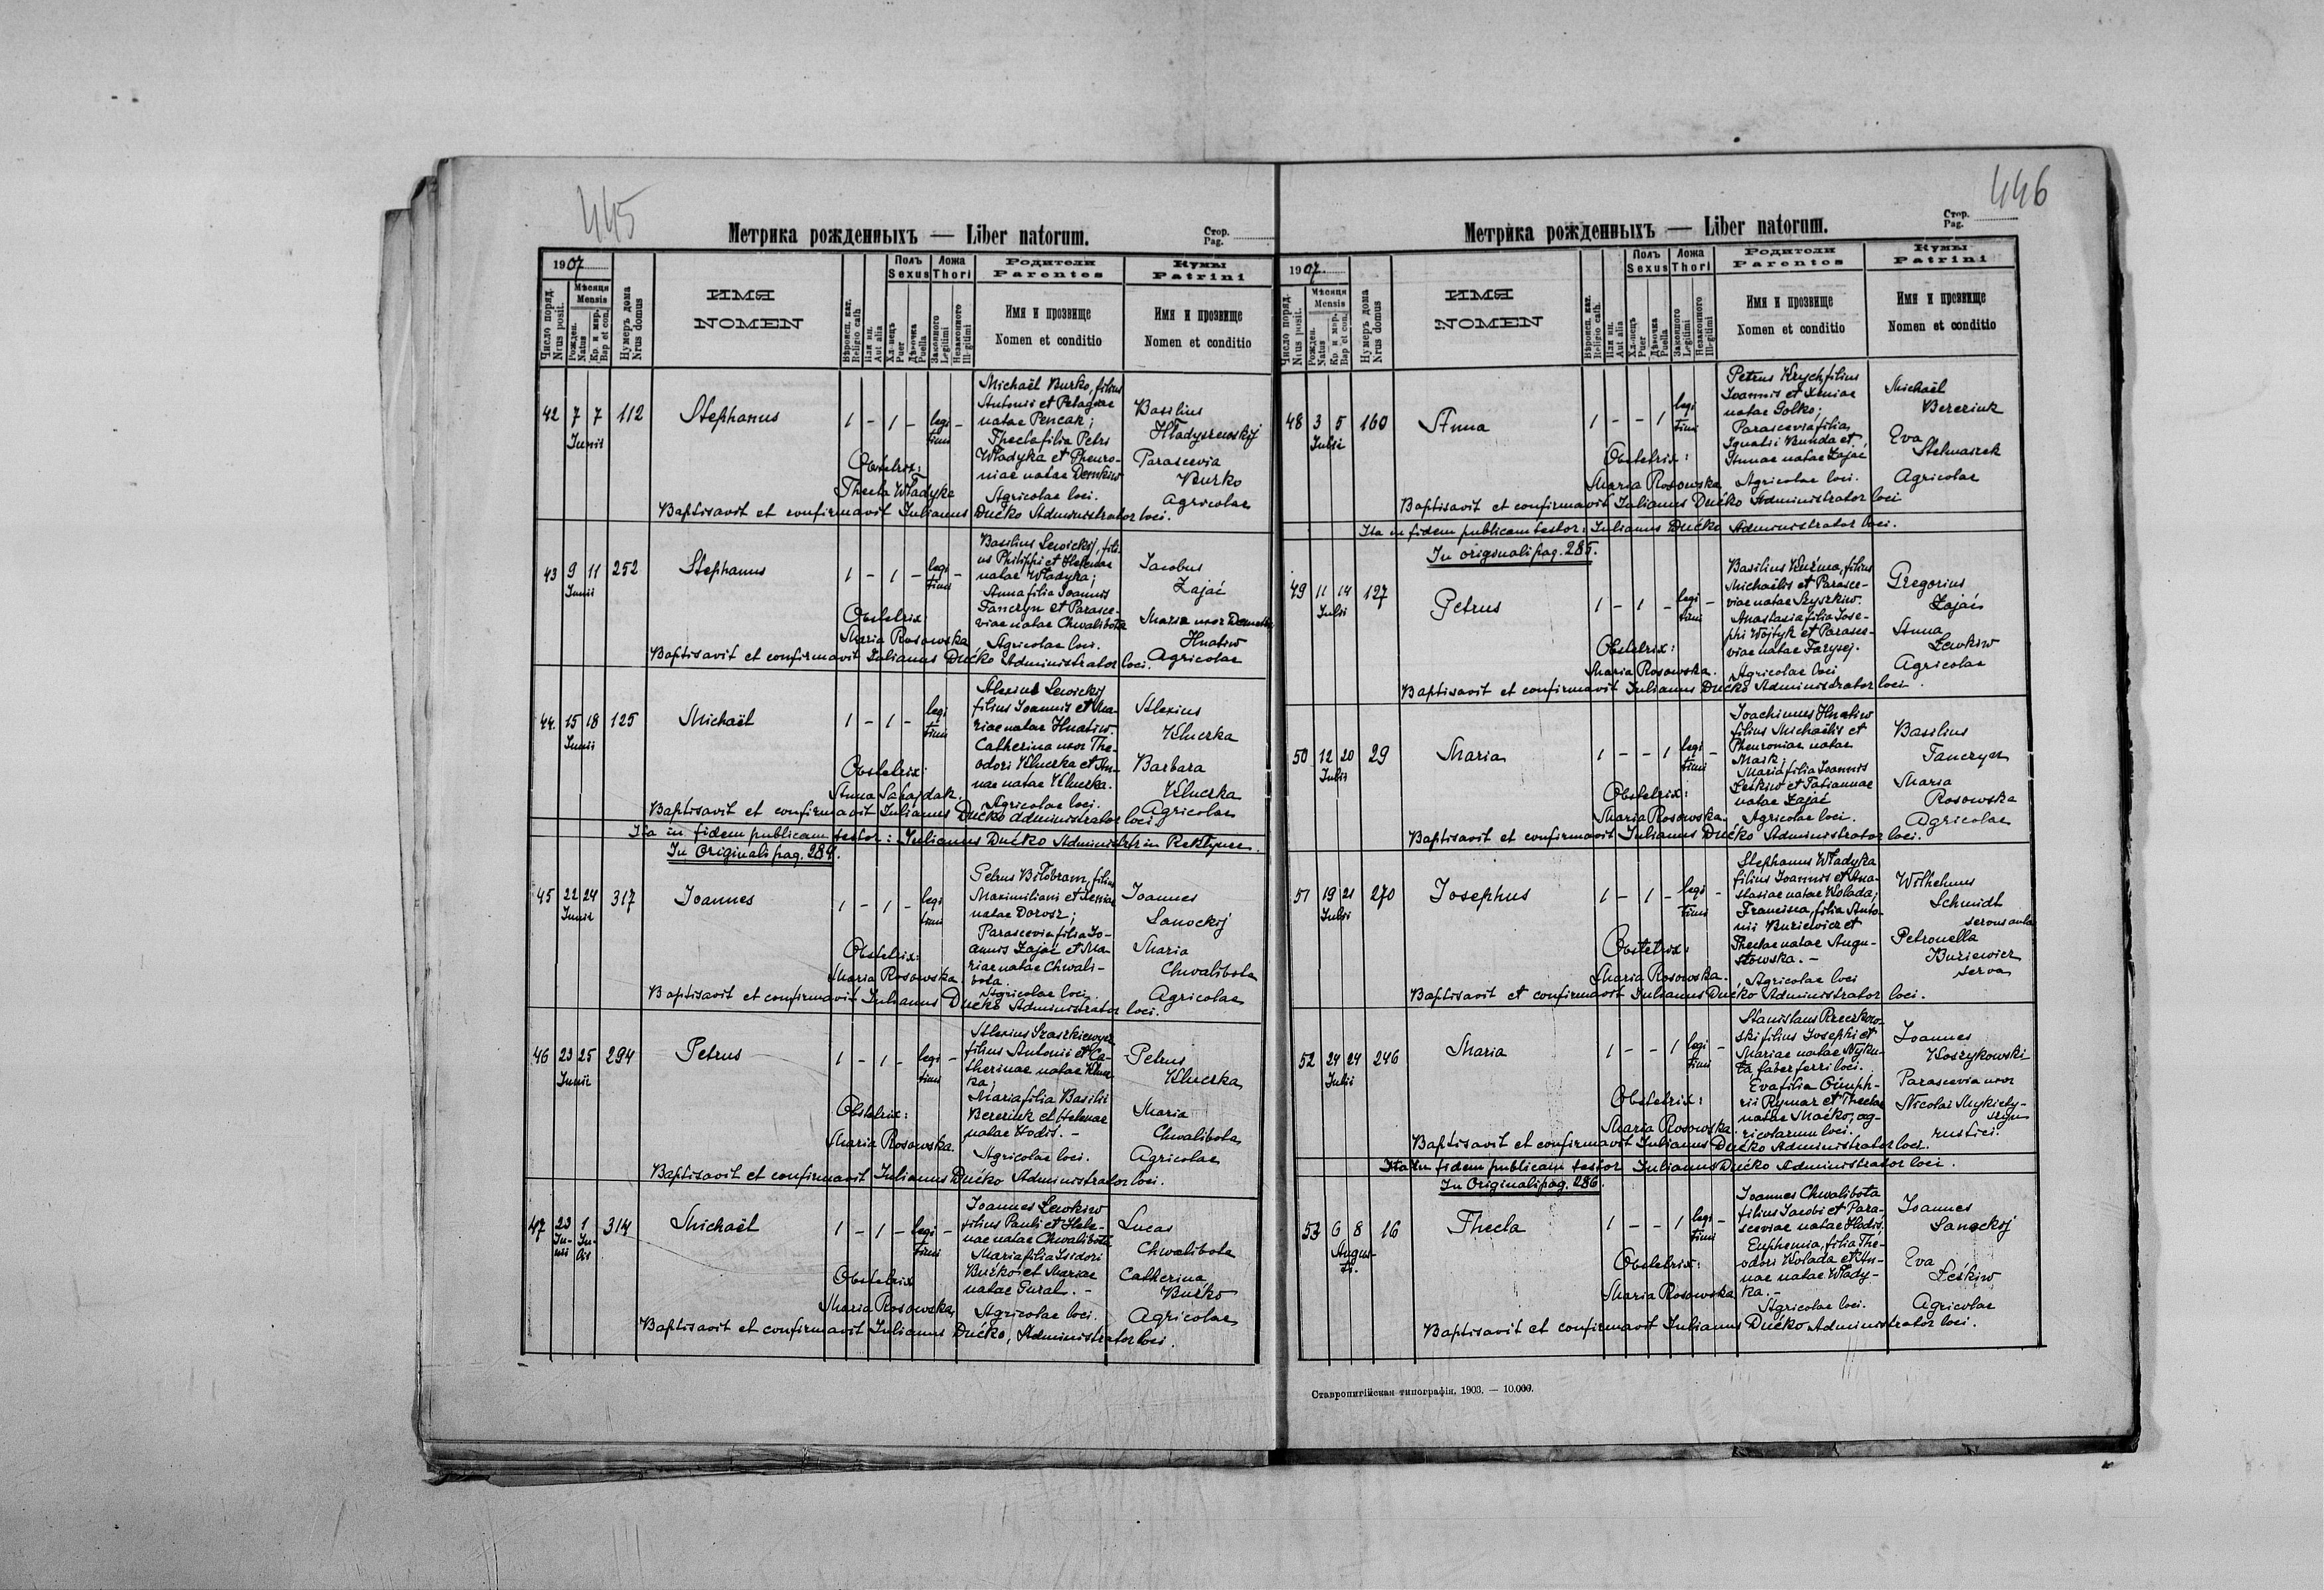 445
Метрика рожденныхъ — Liber natorum.
Стор.
Pag.
1907
Число поряд.
Nrus posit.
Мѣсяця
Mensis
Рожден.
Natus
Кр. и мир.
Bap et con.
Нумеръ дома
Nrus domus
ИМЯ
NOMEN
Вѣроисп. кат.
Religio cath
Или ин.
Aut alia
Полъ
Sexus
Хл-пецъ
Puer
Дѣвочка
Puella
Ложа
Thori
Законного
Legitimi
Незаконного
Ill-gitimi
Родители
Parentes
Имя и прозвище
Nomen et conditio
Кумы
Patrini
Имя и прозвище
Nomen et conditio
42 7 7 112 Stephanus 1 - 1 - legi -
Junii timi
Michaël Burko, filius
Antonii et Pelagiae
natae Pencak;
Thecla filia Petri
Władyka et Pheuro-
niae natae Demkiw
Agricolae loci.
Basilius
Hładyszewskij
Parascevia
Burko
Agricolae
Obstetrix:
Thecla Władyka
Baptisavit et confirmavit Julianus Dućko Administrator loci.
43 9 11 252 Stephanus 1 - 1 - legi -
Junii timi
Basilius Lewickij, fili-
us Philippi et Helenae
natae Władyka;
Anna filia Joannis
Tanczyn et Parasce-
viae natae Chwalibota
Agricolae loci.
Jacobus
Zając
Maria uxor Demetri
Hnatiw
Agricolae
Obstetrix:
Maria Rosowska
Baptisavit et confirmavit Julianus Dućko Administrator loci.
44. 15 18 125 Michaël 1 - 1 - legi
Junii timi
Alexius Lewickij
filius Joannis et Ma-
riae natae Hnatiw.
Catherina uxor The-
odori Kluczka et An-
nae natae Kluczka.
Agricolae loci.
Alexius
Kluczka
Barbara
Kluczka
Agricolae
Obstetrix:
Anna Sahajdak.
Baptisavit et confirmavit Julianus Dućko administrator loci.
Ita in fidem publicam testor: Julianus Dućko Administrator in
In Originali pag. 284.
45 22 24 317 Joannes 1 - 1 - legi
Junii timi
Petrus Biłobram, filius
Maximiliani et Xeniae
natae Dorosz;
Parascevia filia Jo-
annis Zając et Ma-
riae natae Chwali-
bota.
Agricolae loci.
Joannes
Sanockij
Maria
Chwalibota
Agricolae
Obstetrix:
Maria Rosowska.
Baptisavit et confirmavit Julianus Dućko Administrator loci.
46 23 25 294 Petrus 1 - 1 - legi -
Junii timi
Alexius Szaszkiewycz
filius Antonii et Ca-
therinae natae Klucz-
ka;
Maria filia Basilii
Bereziuk et Helenae
natae Hodiś. -
Agricolae loci.
Petrus
Kluczka
Maria
Chwalibota
Agricolae
Obstetrix:
Maria Rosowska.
Baptizavit et confirmavit Julianus Dućko Administrator loci.
47 23 1 314 Michaël 1 - 1 - legi -
Ju- Ju- timi
nii lii
Joannes Lewkiw
filius Pauli et Hele-
nae natae Chwalibota
Maria filia Isidori
Burko et Mariae
natae Gural. -
Agricolae loci.
Lucas
Chwalibota
Catherina
Burko
Agricolae
Obstetrix
Maria Rosowska
Baptisavit et confirmavit Julianus Dućko, Administrator loci.
446
Метрика рожденныхъ — Liber natorum.
Стор.
Pag.
1907.
Число поряд.
Nrus posit.
Мѣсяця
Mensis
Рожден.
Natus
Кр. и мир.
Bap et con.
Нумеръ дома
Nrus domus
ИМЯ
NOMEN
Вѣроисп. кат.
Religio cath.
Или ин.
Aut alia
Полъ
Sexus
Хл-пецъ
Puer
Дѣвочка
Puella
Ложа
Thori
Законного
Legitimi
Незаконного
Ill-gitimi
Родители
Parentes
Имя и прозвище
Nomen et conditio
Кумы
Patrini
Имя и прозвище
Nomen et conditio
48 3 5 160 Anna 1 - - 1 legi
Julii timi
Petrus Krych, filius
Joannis et Xeniae
natae Golko;
Parascevia filia
Ignatii Bunda et
Annae natae Zając
Agricolae loci.
Michaël
Bereziuk
Eva
Stelmaszek
Agricolae
Obstetrix:
Maria Rosowska
Baptisavit et confirmavit Julianus Dućko Administrator loci
Ita in fidem publicam testor: Julianus Dućko Administrator loci.
In originali pag. 285.
49 11 14 127 Petrus 1 - 1 - legi -
Julii timi
Basilius Kuźma, filius
Michaëlis et Parasce-
viae natae Szyszkiw.
Anastasia filia Jose-
phi Wojtyk et Parasce-
viae natae Farysej.
Agricolae loci
Gregorius
Zając
Anna
Lewkiw
Agricolae
Obstetrix:
Maria Rosowska.
Baptisavit et confirmavit Julianus Dućko Administrator loci.
50 12 20 29 Maria 1 - - 1 legi -
Julii timi
Joachimus Hnatiw
filius Michaëlis et
Pheuroniae natae
Masik;
Maria filia Joannis
Leśkiw et Tatiannae
natae Zając
Agricolae loci.
Basilius
Tanczyn
Maria
Rosowska
Agricolae
Obstetrix:
Maria Rosowska.
Baptisavit et confirmavit Julianus Dućko Administrator loci.
51 19 21 270 Josephus 1 - 1 - legi -
Julii timi
Stephanus Władyka
filius Joannis et Ana-
stasiae natae Kolada;
Francisca, filia Anto-
nii Buziewicz et
Theclae natae Augu-
stowska. -
Agricolae loci
Wilhelmus
Schmidt
servus aulae
Petronella
Buziewicz
serva
Obstetrix:
Maria Rosowska.
Baptisavit et confirmavit Julianus Dućko Administrator loci.
52 24 24 246 Maria 1 - - 1 legi -
Julii timi
Stanislaus Rzeczkow-
ski filius Josephi et
Mariae natae Myku-
ta, faber ferri loci.
Eva filia Onuph-
rii Rymar et Theclae
natae Maćko, ag-
ricolarum loci.
Joannes
Koszykowski
Parascevia uxor
Nicolai Mykiety-
szyn
rustici.
Obstetrix:
Maria Rosowska.
Baptisavit et confirmavit Julianus Dućko Administrator loci.
Ita in fidem publicam testor Julianus Dućko Administrator loci.
In Originali pag. 286.
53 6 8 16 Thecla 1 - - 1 legi -
Augus- timi
ti.
Joannes Chwalibota
filius Jacobi et Para-
sceviae natae Hodiś.
Euphemia, filia The-
odori Kolada et An-
nae natae Włady-
ka. -
Agricolae loci.
Joannes
Sanockij
Eva
Leśkiw
Agricolae
Obstetrix:
Maria Rosowska
Baptisavit et confirmavit Julianus Dućko Administrator loci.
Ставропигійская типографія, 1903. — 10.000.